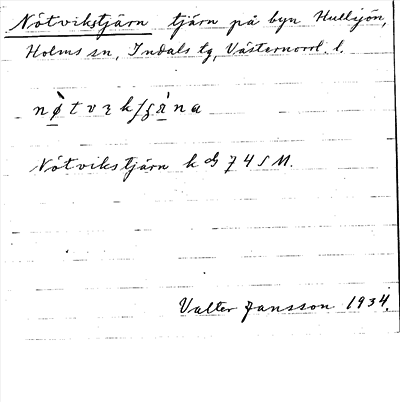 Nötvikstjärn tjärn på byn Hullsjön,
Holms sn, Indals tg, Västernorrl. l.
Nötvikstjärn k bl 74 S M.
Valter Jansson 1934.